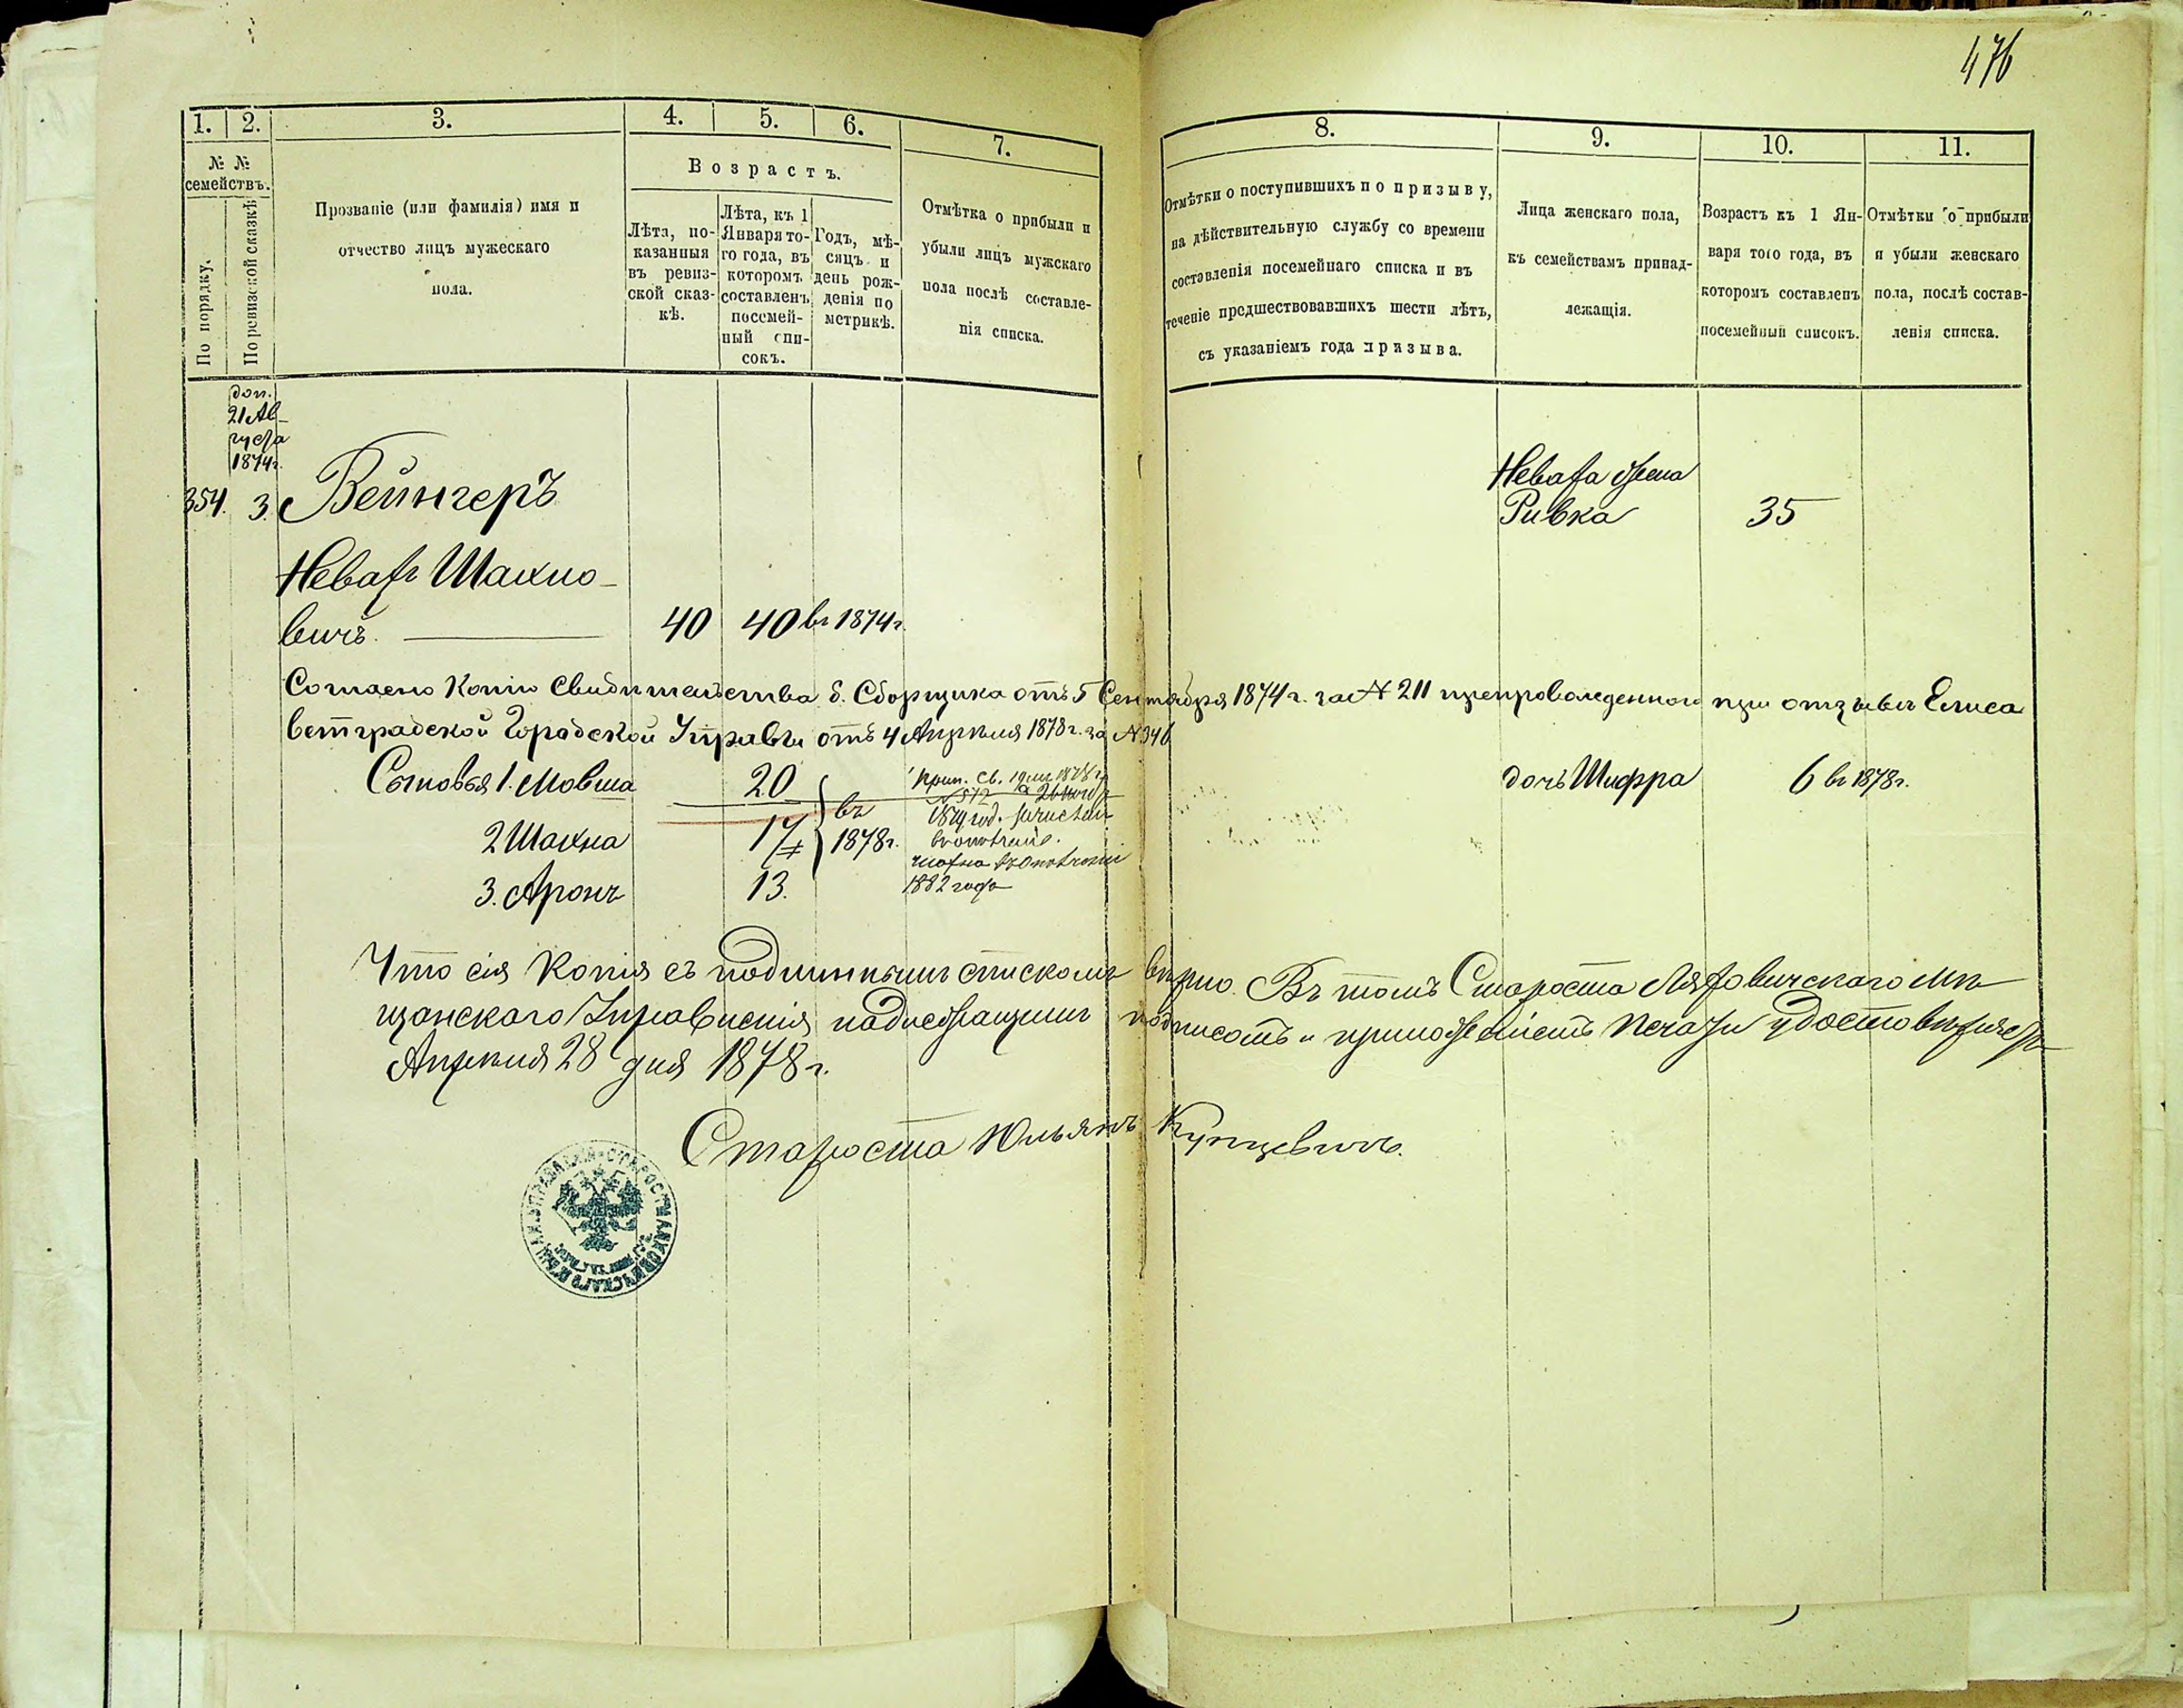 476
1. 2. 3. 4. 5. 6. 7. 8. 9. 10. 11.
№ №
семействъ.
По порядку.
По ревизской сказкѣ
Прозваніе (или фамилія) имя и
отчество лицъ мужескаго
пола.
Возрастъ.
Лѣта, по-
казанныя
въ ревиз-
ской сказ-
кѣ.
Лѣта, къ 1
Января то-
го года, въ
которомъ
составленъ
посемей-
ный спи-
сокъ.
Годъ, мѣ-
сяцъ и
день рож-
денія по
метрикѣ.
Отмѣтка о прибыли и
убыли лицъ мужскаго
пола послѣ составле-
нія списка.
Отмѣтки о поступившихъ по призыву,
на дѣйствительную службу со времени
составленія посемейнаго списка и въ
теченіе предшествовавшихъ шести лѣтъ,
съ указаніемъ года призыва.
Лица женскаго пола,
къ семействамъ принад-
лежащія.
Возрастъ къ 1 Ян-
варя того года, въ
которомъ составленъ
посемейный списокъ.
Отмѣтки о прибыли
и убыли женскаго
пола, послѣ состав-
ленія списка.
доп.
21 Ав-
густа
1874г.
354. 3. Вейнгеръ
Невахъ Шахно-
вичъ. 40 40 въ 1874г.
Неваха жена
Ривка 35
Согласно Копіи Свидѣтельства б. Сборщика отъ 5 Сентября 1874 г. за № 211 препровожденного при отзывѣ Елиса
ветградской Городской Управы отъ 4 Апрѣля 1878 г. за № 346
Сыновья 1. Мовша 20
2 Шахна 17
3. Аронъ 13.
въ
1878г.
Прип. св.
№ 572
1879 год.
1882 года
дочь Шифра 6 въ 1878г.
Что сія Копія съ подлиннымъ спискомъ вѣрно. Въ томъ Староста Ляховичскаго Мѣ
щанскаго Управленія надлежащимъ подписомъ и приложеніемъ печати удостовѣряетъ
Апрѣля 28 дня 1878 г.
Староста Юльянъ Купцевичъ.